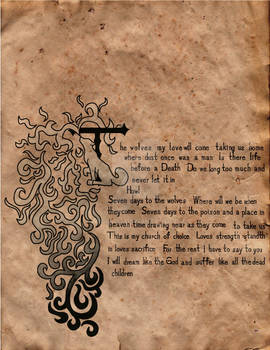 The wolves my love will come taking us home
where dust once was a man Is there life
before a Death Do we long too much and
never let it in
Howl
Seven days to the wolves Where will we be when
they come Seven days to the poison and a place in
heaven time drawing near as they come to take us
This is my church of choice Loves strength standth
in loves sacrifice For the rest I have to say to you
I will dream like the God and suffer like all the dead
children